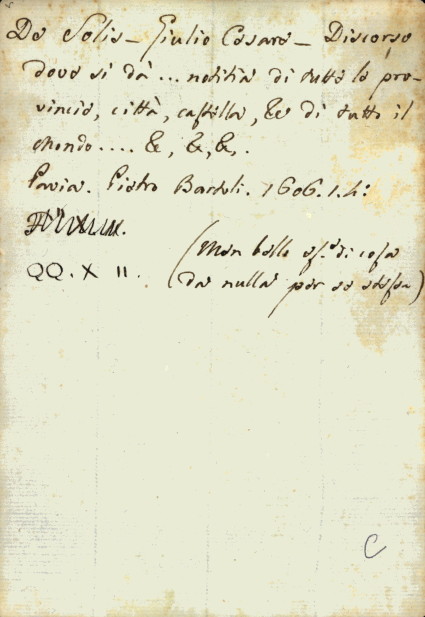 De Solis - Giulio Cesare - Discorso
dove si dà ... notitia di tutte le pro-
vincie, città, castella, &c di tutto il
Mondo .... &, &, &,.
Pavia. Pietro Bartoli. 1606. 1. 4:
QQ. X II.
(Non bello es.e di cosa
da nulla per se stessa)
C